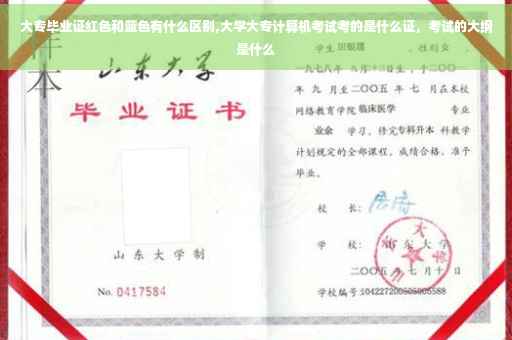 大专毕业证红色和蓝色有什么区别,大学大专计算机考试考的是什么证，考试的大纲
是什么
样本
山东大学
毕业证书
山东大学制
No. 0417584
学生
性别女，
一九七八年
日生，于二〇〇
年九月至二〇〇五年七月在本校
网络教育学院临床医学 专业
业余 学习，修完专科升本科教学
计划规定的全部课程，成绩合格，准予
毕业。
校 长：
学 校：山东大学
二〇〇五年七月十日
学校编号: